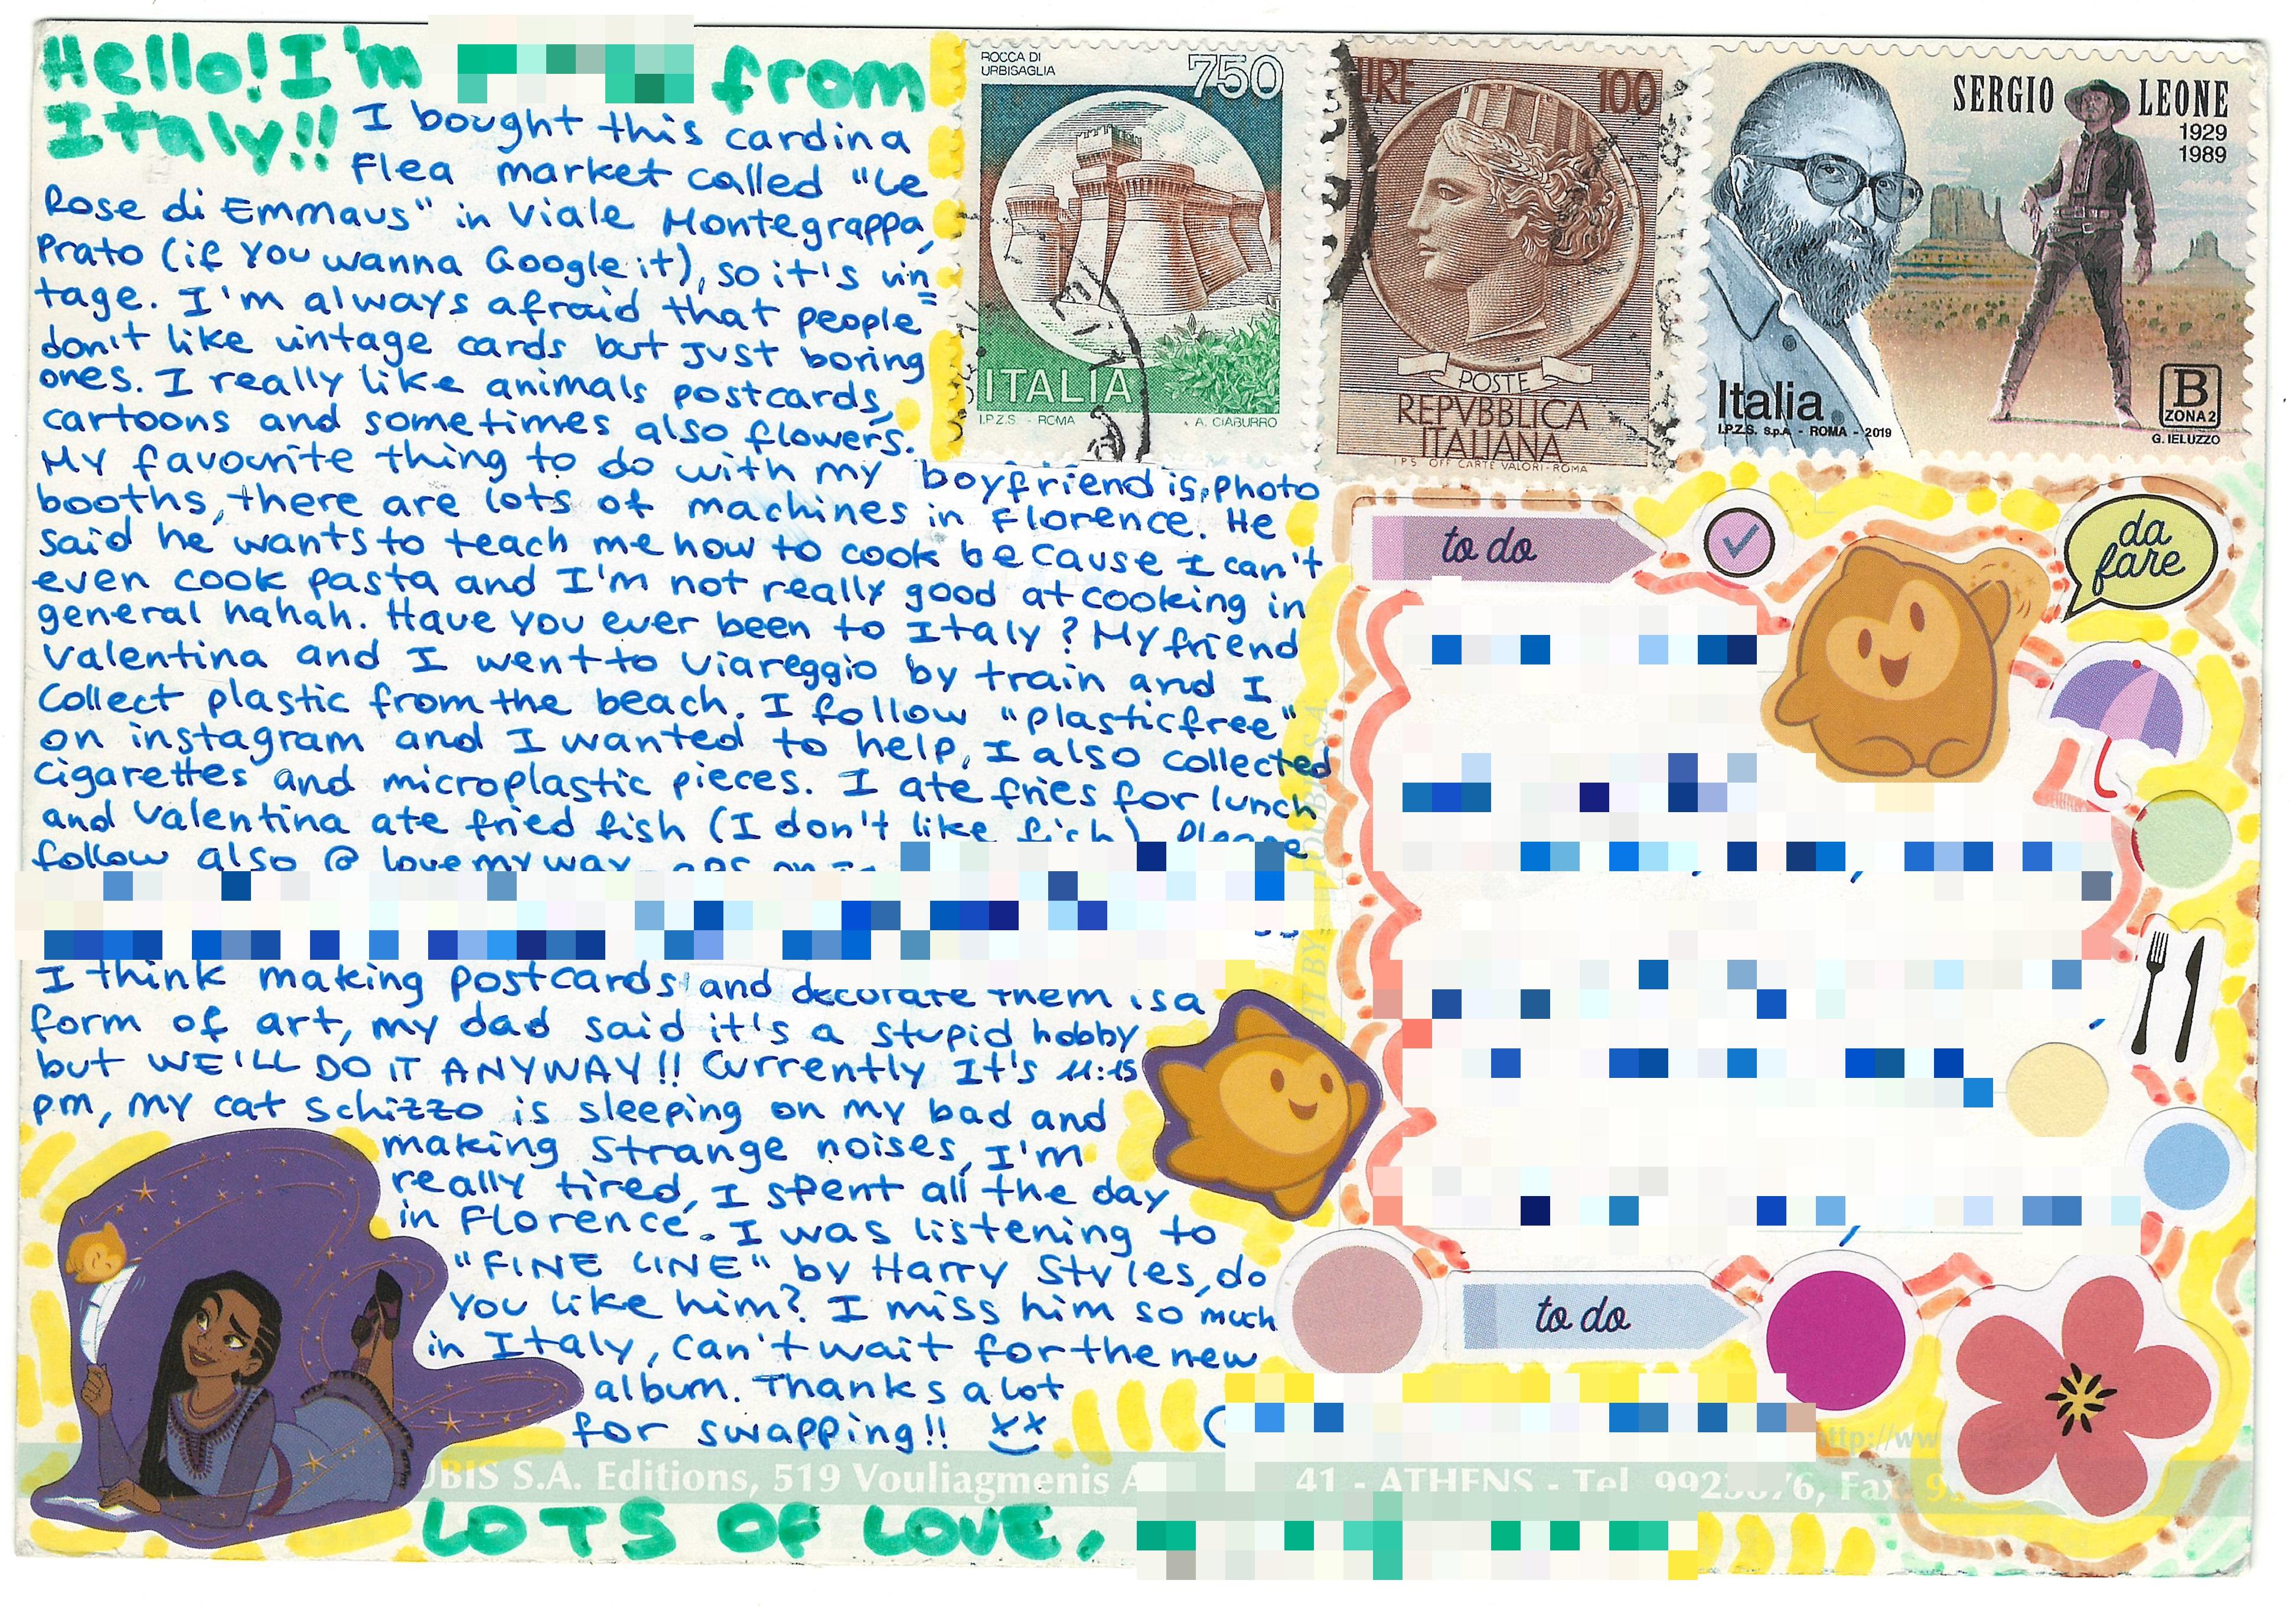 Hello! I'm from
Italy!!
I bought this card in a
flea market called "Le
Rose di Emmaus" in Viale Montegrappa,
Prato (if you wanna Google it), so it's vin=
tage. I'm always afraid that people
don't like vintage cards but just boring
ones. I really like animals postcards,
cartoons and sometimes also flowers.
My favourite thing to do with my boyfriend is photo
booths, there are lots of machines in Florence. He
said he wants to teach me how to cook because I can't
even cook pasta and I'm not really good at cooking in
general hahah. Have you ever been to Italy? My friend
Valentina and I went to Viareggio by train and I
collect plastic from the beach. I follow "plasticfree"
on instagram and I wanted to help, I also collected
cigarettes and microplastic pieces. I ate fries for lunch
and Valentina ate fried fish (I don't like fish). Please
follow also @lovemyway
I think making postcards and decorate them is a
form of art, my dad said it's a stupid hobby
but WE'LL DO IT ANYWAY!! Currently It's 11:15
pm, my cat Schizzo is sleeping on my bad and
making strange noises, I'm
really tired, I spent all the day
in Florence. I was listening to
"FINE LINE" by Harry Styles, do
you like him? I miss him so much
in Italy, can't wait for the new
album. Thanks a lot
for swapping!!
LOTS OF LOVE,
ROCCA DI
URBISAGLIA
750
ITALIA
I.P.Z.S. - ROMA A. CIABURRO
LIRE 100
POSTE
REPVBBLICA
ITALIANA
I.P.S. OFF. CARTE VALORI-ROMA
SERGIO LEONE
1929
1989
Italia
I.P.Z.S. S.p.A. - ROMA - 2019
B
ZONA 2
G. IELUZZO
to do
da
fare
to do
UBIS S.A. Editions, 519 Vouliagmenis 41 - ATHENS - Tel. Fax
http://ww